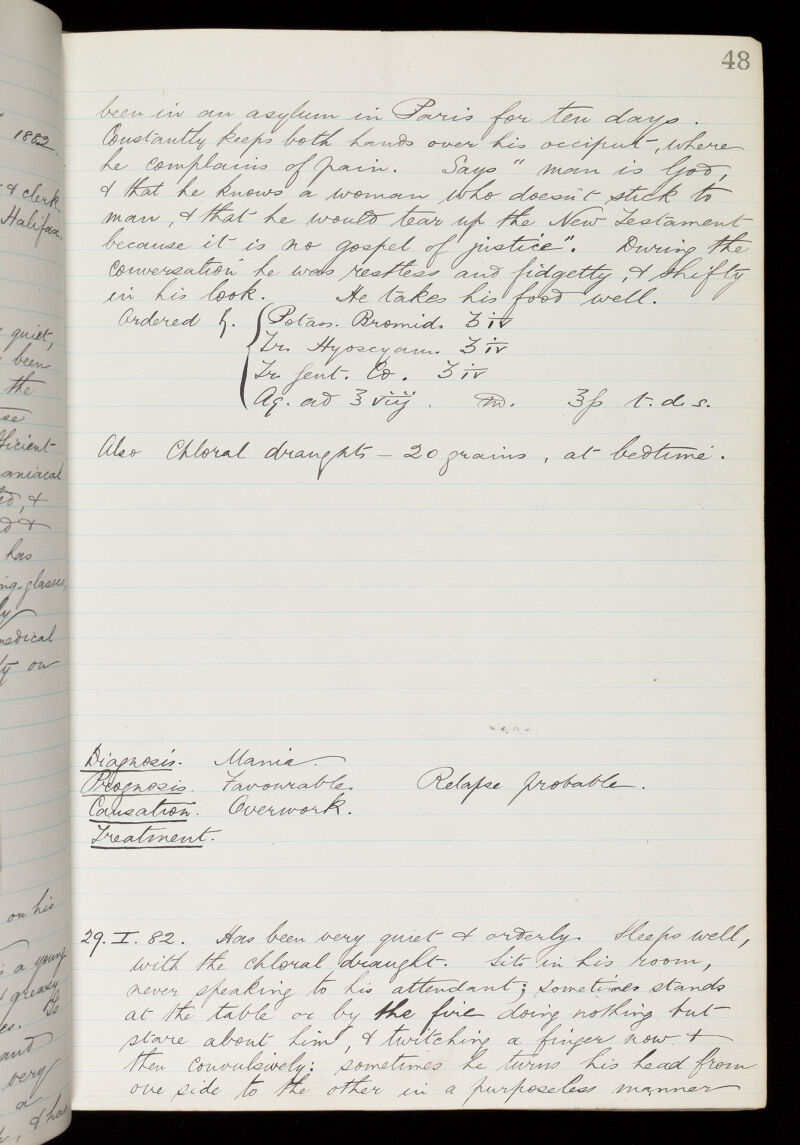 48
been in an asylum in Paris for ten days.
Constantly keeps both hands over his occiput, where
he complains of pain. Says "man is God,
& that he knows a woman who doesn't stick to
man, & that he would tear up the New Testament
because it is no gospel of justice". During the
conversation he was restless and fidgetty, & shifty
in his look. He takes his food well.
Ordered ℞. Potass. Bromid. ʒ iv
Tr. Hyoscyam. ʒ iv
Tr. Gent. Co. ʒ iv
Aq. ad ℥ viij. ℥ß t.d.s.
Also Chloral draughts – 20 grains, at bedtime.
Diagnosis. Mania.
Prognosis. Favourable. Relapse probable.
Causation. Overwork.
Treatment.
29. I. 82. Has been very quiet & orderly. Sleeps well,
with the chloral draught. Sits in his room,
never speaking to his attendant; sometimes stands
at the table or by the fire doing nothing but
stare about him, & twitching a finger now &
then convulsively: sometimes he turns his head from
one side to the other in a purposeless manner
1882.
& clerk.
Halifax.
quiet,
been
the
ficient
maniacal
ed, &
d &
has
ing-glasses,
ly
medical
ty on
on his
is a young
& greasy
and
very
a
& has